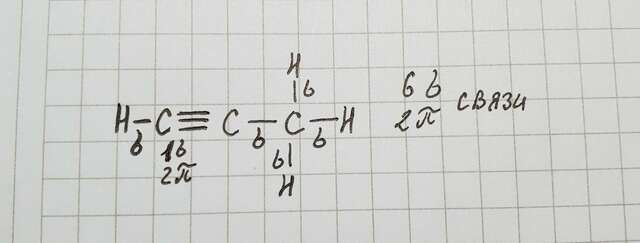 H
б
H–C≡C–C–H
б б б
1б б
2π
H
6 б
2 π связи